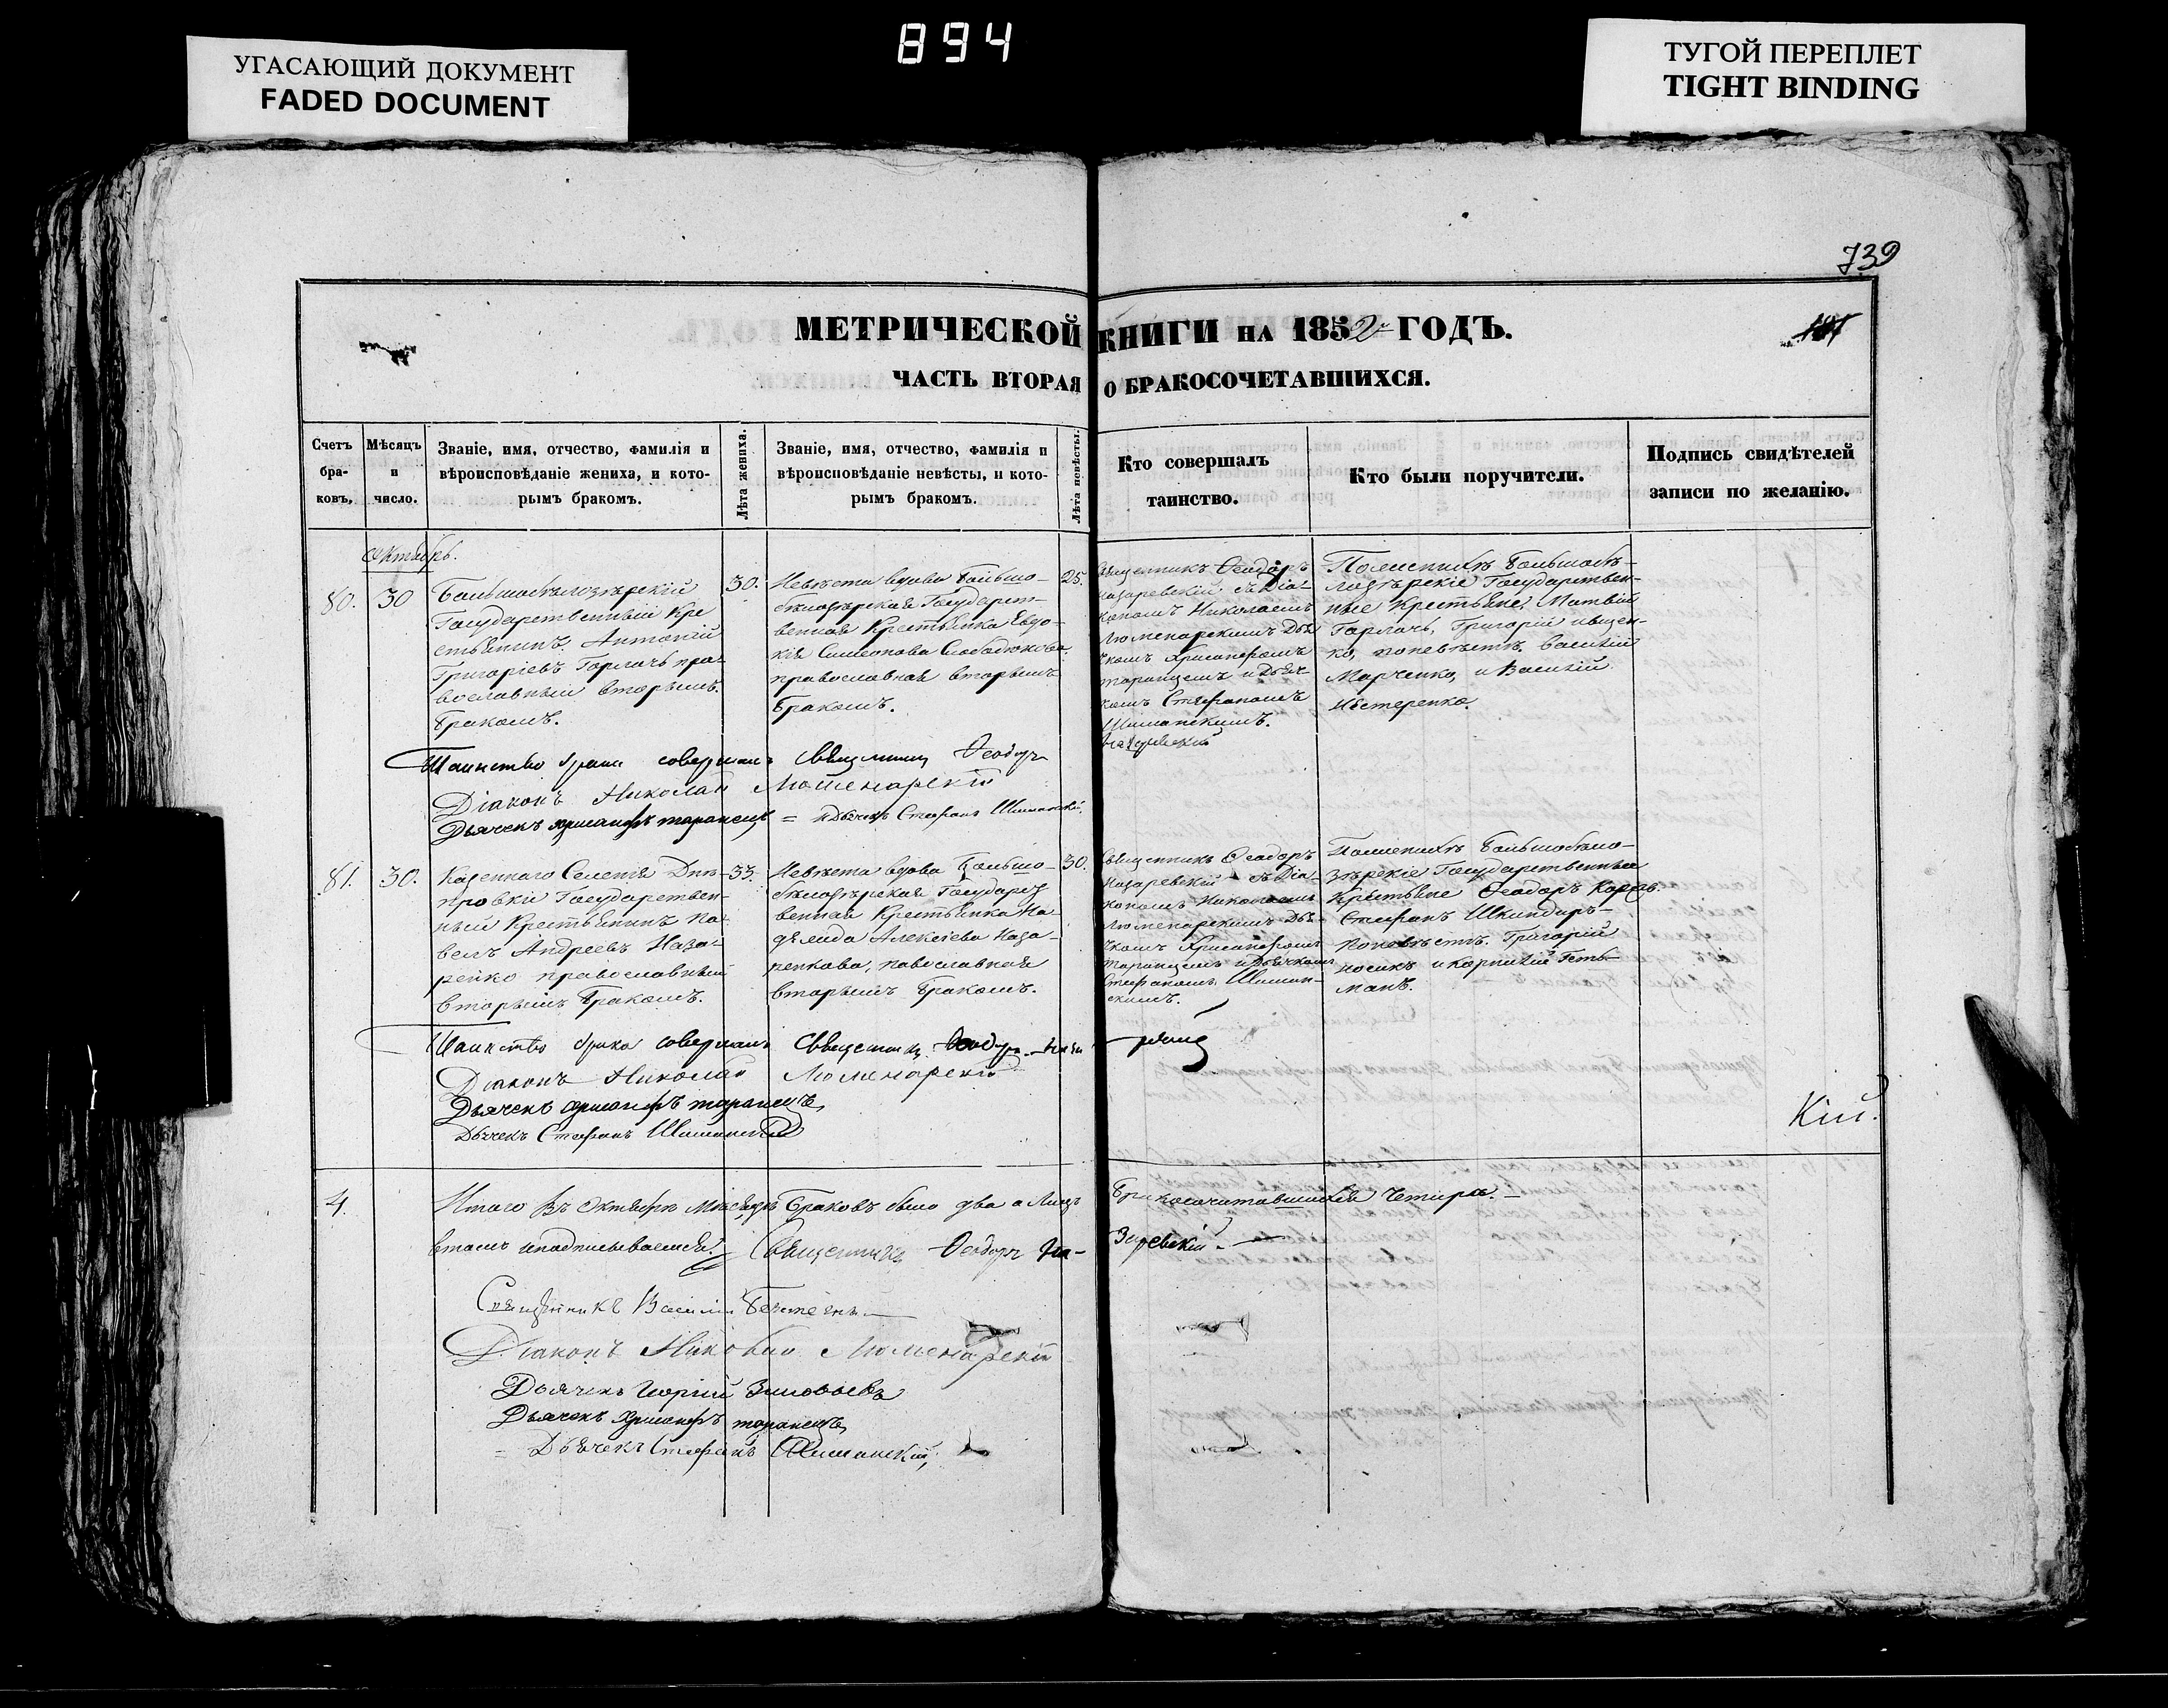 894
УГАСАЮЩИЙ ДОКУМЕНТ
FADED DOCUMENT
ТУГОЙ ПЕРЕПЛЕТ
TIGHT BINDING
739
МЕТРИЧЕСКОЙ КНИГИ НА 1852 ГОДЪ.
ЧАСТЬ ВТОРАЯ О БРАКОСОЧЕТАВШИХСЯ.
Счетъ
бра-
ковъ.
Мѣсяцъ
и
число.
Званіе, имя, отчество, фамилія и
вѣроисповѣданіе жениха, и кото-
рымъ бракомъ.
Лѣта жениха.
Званіе, имя, отчество, фамилія и
вѣроисповѣданіе невѣсты, и кото-
рымъ бракомъ.
Лѣта невѣсты.
Кто совершалъ
таинство.
Кто были поручители.
Подпись свидѣтелей
записи по желанію.
Октябрь.
80.
30
Большобѣлозѣрскій
Государственный Кре
стьянинъ Антоній
Григоріевъ Горлачь пра-
вославный вторымъ
бракомъ.
30.
Невѣста вдова Большо-
бѣлозѣрская Государст-
венная Крестьянка Евдо-
кія Симеонова Слободюкова
православная вторымъ
бракомъ.
25.
Священникъ Ѳеодоръ
Назаревскій съ Діа-
кономъ Николаемъ
Люменарскимъ Дья
чкомъ Хрисанфомъ
таранцемъ и Дьяч-
комъ Стефаномъ
Шиманскимъ.
По женихѣ Большобѣ-
лозѣрскіе Государствен-
ные Крестьяне, Матвій
Горлачь, Григорій
ко, по невѣстѣ, Василій
Марченко, и Василій
Нестеренко.
Таинство брака совершалъ Священникъ Ѳеодоръ
Назаревскій
Діаконъ Николай Люменарскій
Дьячекъ Хрисанфъ таранецъ = и Дьячекъ Стефанъ Шиманскій.
81.
30.
Казеннаго Селенія Днѣ-
провки Государствен-
ный Крестьянинъ Па-
велъ Андреевъ Наза-
ренко православный
вторымъ бракомъ.
33.
Невѣста вдова Большо-
бѣлозѣрская Государст
венная Крестьянка На
дѣжда Алексіева Наза-
ренкова, павославная
вторымъ бракомъ.
30.
Священникъ Ѳеодоръ
Назаревскій съ Діа-
кономъ Николаемъ
Люменарскимъ Дья-
чкомъ Хрисанфомъ
Таранцемъ и Дьячкомъ
Стефаномъ Шиман-
скимъ.
По женихѣ Большобѣло-
зѣрскіе Государственные
Крестьяне Ѳеодоръ
Стефанъ Шкиндиръ-
по невѣстѣ. Григорій
носикъ и Корнилій Геть-
манъ.
Таинство брака совершалъ Священникъ Ѳеодоръ
кій.
Діаконъ Николай Люменарскій
Дьячекъ Хрисанфъ таранецъ,
Дьячекъ Стефанъ Шиманскій
4.
Итого въ Октябрѣ Мѣсяцѣ Браковъ было два а Лицъ бракосочитавшихся Четыре.-
втомъ и подписываемся. Священникъ Ѳеодоръ На-заревскій
Священникъ Василій
Діаконъ Николай Люменарскій
Дьячекъ Георгій Зиновьевъ
Дьячекъ Хрисанфъ таранецъ,
= Дьячекъ Стефанъ Шиманскій,